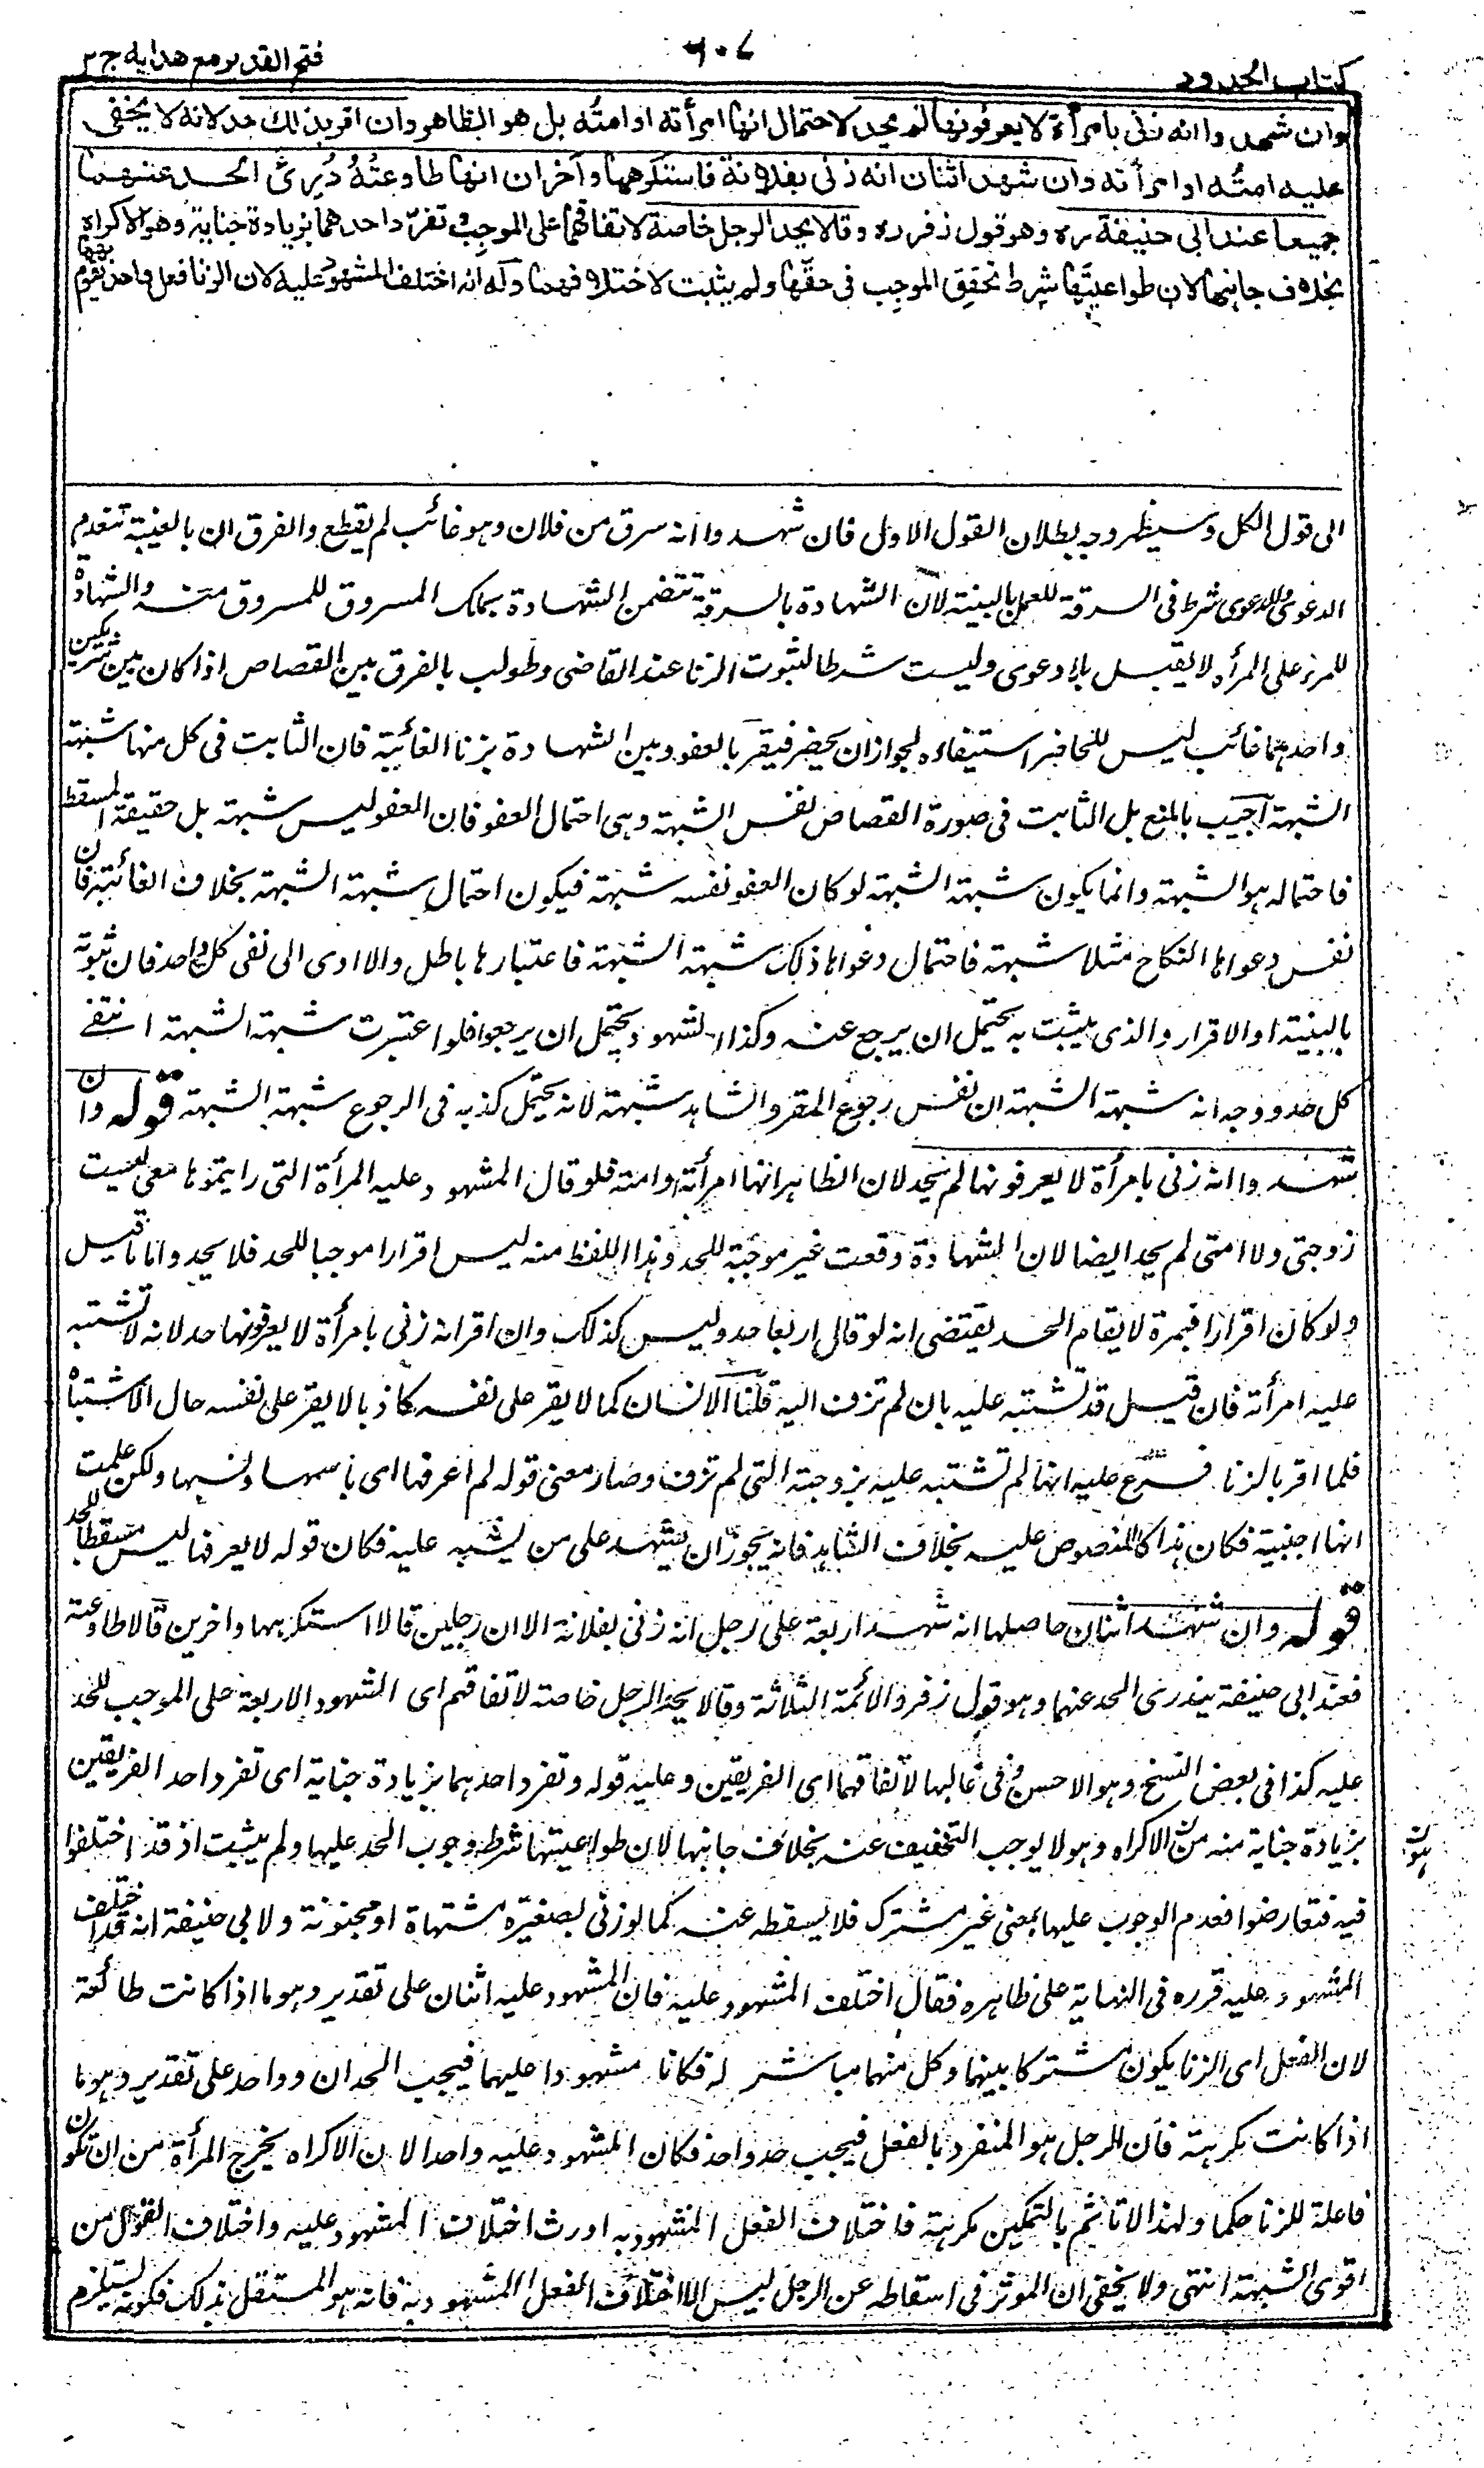 كتاب الحدود
٦٠٧
فتح القدير مع هدايه ج ٢
وان شهدوا انه زنى بامرأة لا يعرفونها لم يحد لاحتمال انها امرأته او امته بل هو الظاهر وان اقر بذلك حد لانه لا يخفى
عليه امته او امرأته وان شهد اثنان انه زنى بفلانة فاستكرهها وآخران انها طاوعته دُرِئ الحد عنهما
جميعا عند ابى حنيفة ره وهو قول زفر ره وقالا يحد الرجل خاصة لاتفاقهما على الموجب وتفرد احدهما بزيادة جناية وهو الاكراه
بخلاف جانبها لان طواعيتها شرط تحقق الموجب فى حقها ولم يثبت لاختلافهما وله انه اختلف المشهود عليه لان الزنا فعل واحد يقوم بهما
الى قول الكل وسيظهر وجه بطلان القول الاول فان شهدوا انه سرق من فلان وهو غائب لم يقطع والفرق ان بالغيبة تنعدم
الدعوى والدعوى شرط فى السرقة للعمل بالبينة لان الشهادة بالسرقة تتضمن الشهادة بملك المسروق للمسروق منه والشهادة
للمرء على المرأه لا يقبل بلا دعوى وليست شرطا لثبوت الزنا عند القاضى وطولب بالفرق بين القصاص اذا كان بين شريكين
واحدهما غائب ليس للحاضر استيفاءه لجواز ان يحضر فيقر بالعفو وبين الشهادة بزنا الغائبة فان الثابت فى كل منهما شبهة
الشبهة اجيب بالمنع بل الثابت فى صورة القصاص نفس الشبهة وهى احتمال العفو فان العفو ليس شبهة بل حقيقة المسقط
فاحتماله هو الشبهة وانما يكون شبهة الشبهة لو كان العفو نفسه شبهة فيكون احتمال شبهة الشبهة بخلاف الغائبة فان
نفس دعواها النكاح مثلا شبهة فاحتمال دعواها ذلك شبهة الشبهة فاعتبارها باطل والا ادى الى نفى كل واحد فان ثبوته
بالبينة او الاقرار والذى يثبت به يحتمل ان يرجع عنه وكذا الشهود يحتمل ان يرجعوا فلو اعتبرت شبهة الشبهة انتفى
كل حد ووجه انه شبهة الشبهة ان نفس رجوع المقر والشاهد شبهة لانه يحتمل كذبه فى الرجوع شبهة الشبهة قوله وان
شهدوا انه زنى بامرأة لا يعرفونها لم يحد لان الظاهر انها امرأته او امته فلو قال المشهود عليه المرأة التى رايتموها معى ليست
زوجتى ولا امتى لم يحد ايضا لان الشهادة وقعت غير موجبة للحد وهذا اللفظ منه ليس اقرارا موجبا للحد فلا يحد واما ما قيل
ولو كان اقرارا فبمرة لا يقام الحد يقتضى انه لو قال اربعا حد وليس كذلك وان اقر انه زنى بامرأة لا يعرفونها حد لانه لا تشتبه
عليه امرأته فان قيل قد تشتبه عليه بان لم تزف اليه قلنا الانسان كما لا يقر على نفسه كاذبا لا يقر على نفسه حال الاشتباه
فلما اقر بالزنا فرع عليه انها لم تشتبه عليه بزوجته التى لم تزف وصار معنى قوله لم اعرفها اى باسمها ونسبها ولكن علمت
انها اجنبية فكان هذا كالمنصوص عليه بخلاف الشاهد فانه يجوز ان يشهد على من يشبه عليه فكان قوله لا يعرفها ليس مسقطا للحد
قوله وان شهد اثنان حاصلها انه شهد اربعة على رجل انه زنى بفلانة الا ان رجلين قالا استكرهها واخرين قالا طاوعته
فعند ابى حنيفة يندرى الحد عنهما وهو قول زفر والائمة الثلاثة وقالا يحد الرجل خاصة لاتفاقهم اى الشهود الاربعة على الموجب للحد
عليه كذا فى بعض النسخ وهو الاحسن وفى غالبها لاتفاقهما اى الفريقين وعليه قوله وتفرد احدهما بزيادة جناية اى تفرد احد الفريقين
بزيادة جناية منه من الاكراه وهو لا يوجب التخفيف عنه بخلاف جانبها لان طواعيتها شرط وجوب الحد عليها ولم يثبت اذ قد اختلفوا
فيه فتعارضوا فعدم الوجوب عليها بمعنى غير مشترك فلا يسقطه عنه كما لو زنى بصغيرة مشتهاة او مجنونة ولابى حنيفة انه قد اختلف
المشهود عليه قرره فى النهاية على ظاهره فقال اختلف المشهود عليه فان المشهود عليه اثنان على تقدير وهو ما اذا كانت طائعة
لان الفعل اى الزنا يكون مشتركا بينهما وكل منهما مباشر له فكانا مشهودا عليهما فيجب الحدان وواحد على تقدير وهو ما
اذا كانت مكرهة فان الرجل هو المنفرد بالفعل فيجب حد واحد فكان المشهود عليه واحدا لان الاكراه يخرج المرأة من ان تكون
فاعلة للزنا حكما ولهذا لا تاثم بالتمكين مكرهة فاختلاف الفعل المشهود به اورث اختلاف المشهود عليه واختلاف القول من
اقوى الشبهة انتهى ولا يخفى ان الموثر فى اسقاطه عن الرجل ليس الا اختلاف الفعل المشهود به فانه هو المستقل بذلك فكونه يستلزم